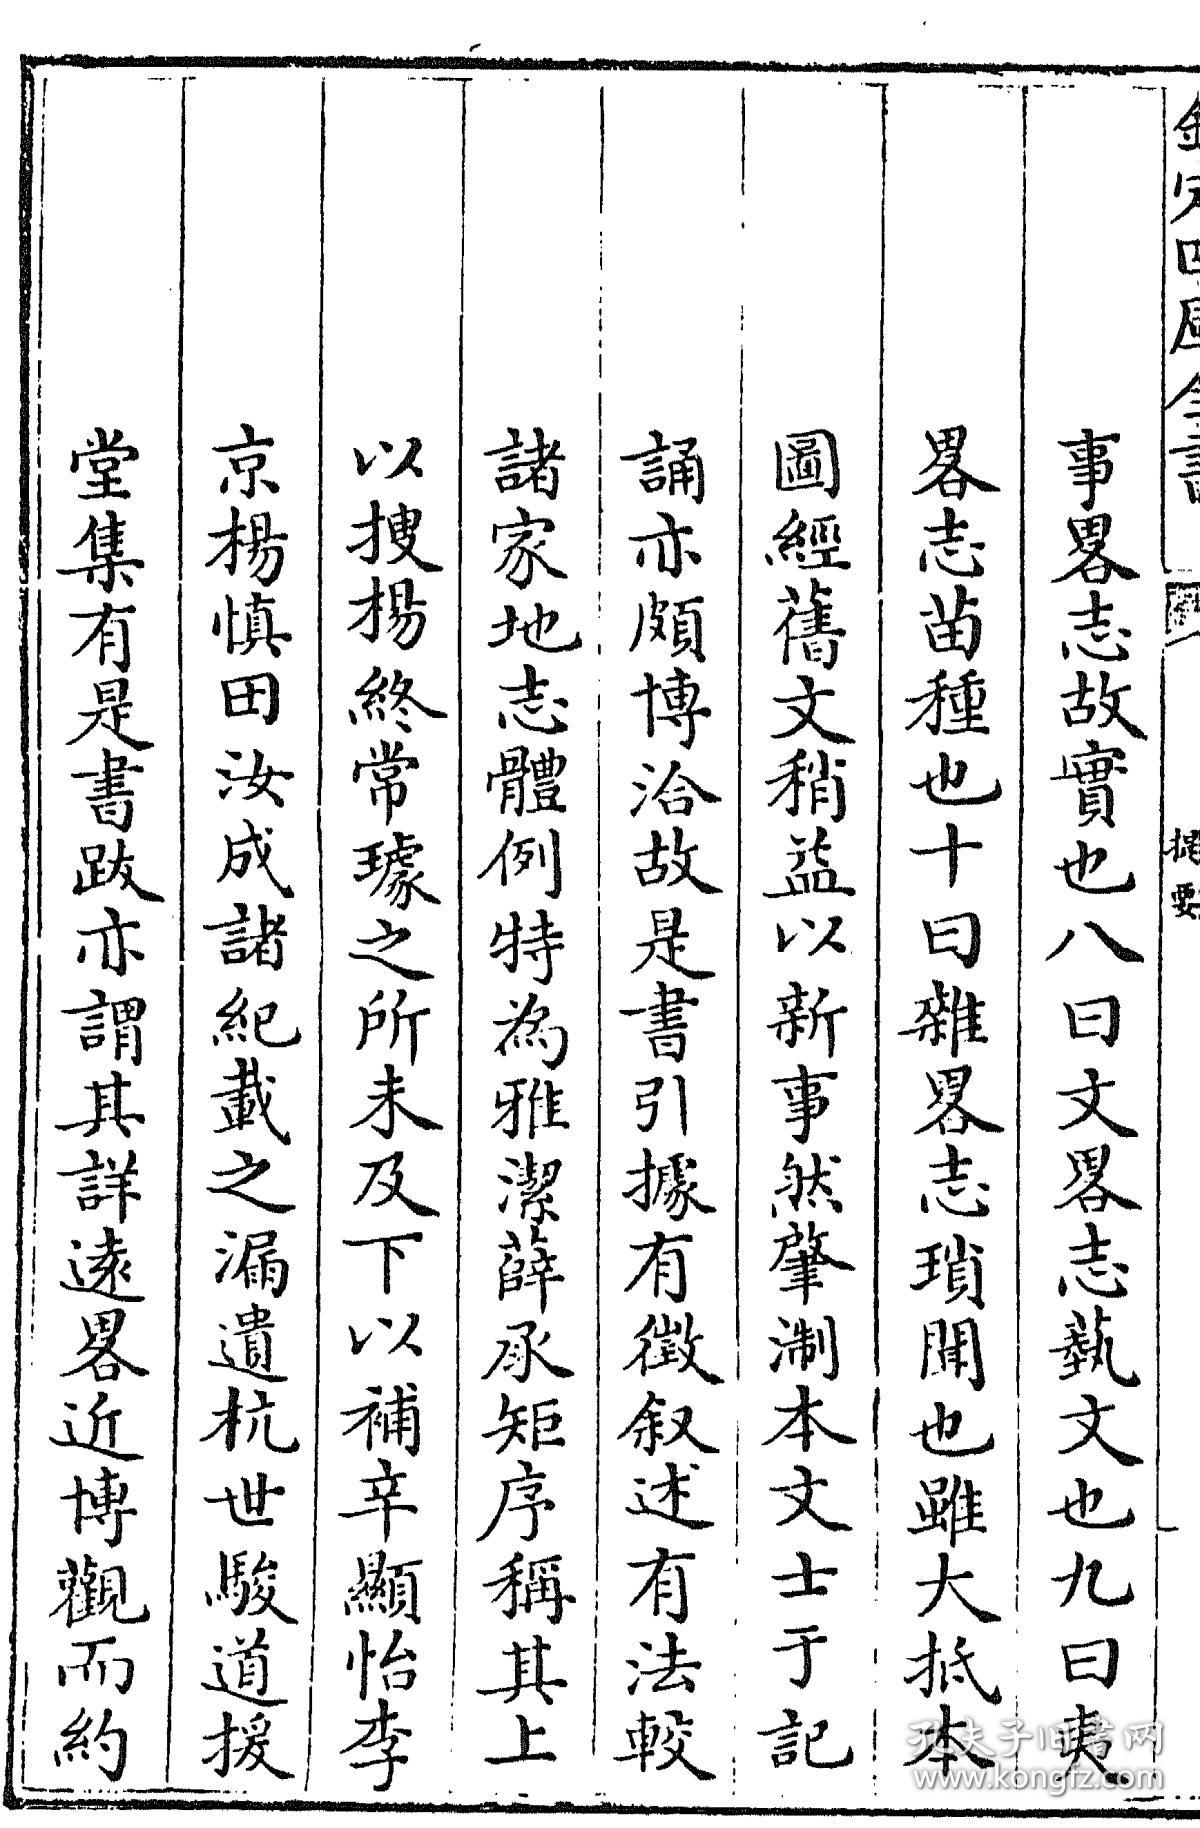 欽定四庫全書
提要
事畧志故實也八曰文畧志藝文也九曰夷
畧志苗種也十曰雜畧志瑣聞也雖大抵本
圖經舊文稍益以新事然肇淛本文士于記
誦亦頗博洽故是書引據有徵叙述有法較
諸家地志體例特為雅潔薛承矩序稱其上
以搜揚終常璩之所未及下以補辛顯怡李
京楊慎田汝成諸紀載之漏遺杭世駿道援
堂集有是書跋亦謂其詳遠畧近博觀而約
孔夫子旧書网
www.kongfz.com